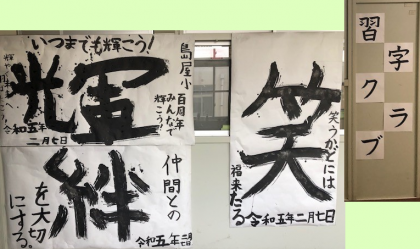 いつまでも輝こう!
輝
島屋小
百周年
みんなで
輝こう!
令和五年
二月七日
絆
仲間との
を大切
にする。
令和五年二月七日
笑
笑うかどには
福来たる
令和五年二月七日
習字
クラブ